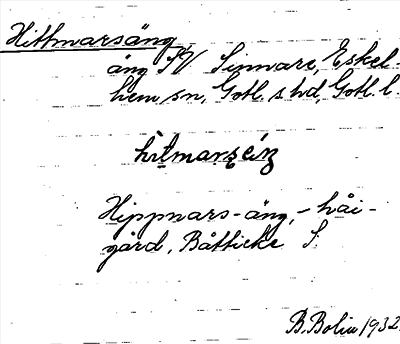 Hittmarsäng
äng S/ Sinnare, Eskel-
hem sn, Gotl. s hd, Gotl. l.
hìtmarʂéiŋ
Hippnars-äng, - håi-
gård, Båtticke S.
B. Bolin 1932.